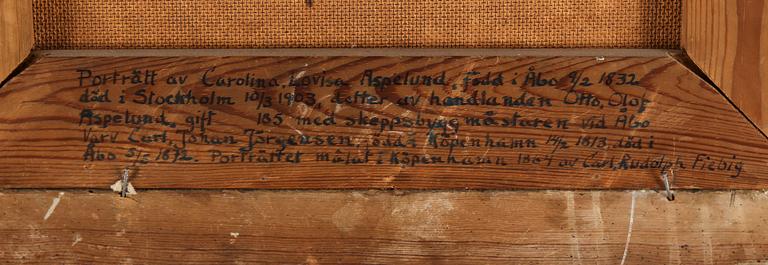 Porträtt av Carolina, Lovisa Aspelund, född i Åbo 9/2 1832
död i Stockholm 10/3 1903, dotter av handlanden Otto, Olof
Aspelund, gift 185 med skeppsbyggmästaren vid Åbo
Varv Carl, Johan Jörgensen, född i Köpenhamn 14/2 1813, död i
Åbo 5/5 1872. Porträttet målat i Köpenhamn 1864 av Carl, Rudolph Fiebig